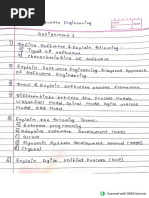 Software Engineering
Assignment 1
1) Define Software & Explain following:
i) Types of software
ii) Characteristics of software
2) Explain Software Engineering & layered Approach
of Software Engineering.
3) Draw & Explain Software process Framework
4) Differentiate between the Process Models
Waterfall Model, Spiral Model, Agile process
Model, RAD Model.
5) Explain the following Terms:
Extreme programming
Adaptive Software Development (ASD)
Scrum
Dynamic System Development Method (DSDM)
Crystal
6) Explain Agile Unified Process (AUP)
Scanned with OKEN Scanner